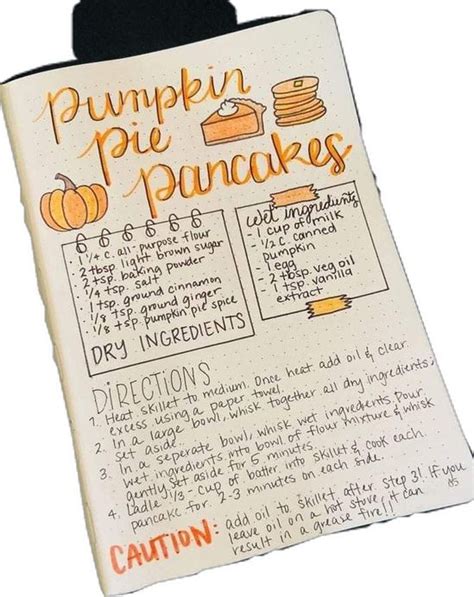 Pumpkin
Pie
Pancakes
• 1 1/4 c. all-purpose flour
• 2 tbsp. light brown sugar
• 2 tsp. baking powder
• 1/4 tsp. salt
• 1 tsp. ground cinnamon
• 1/8 tsp. ground ginger
• 1/8 tsp. pumpkin pie spice
DRY INGREDIENTS
wet ingredients
- 1 cup of milk
- 1/2 c. canned
pumpkin
- 1 egg
- 2 tbsp veg oil
- 1 tsp. vanilla
extract
DIRECTIONS
1. Heat skillet to medium. Once heat add oil & clear
excess using a paper towel.
2. In a large bowl, whisk together all dry ingredients;
set aside.
3. In a seperate bowl, whisk wet ingredients. Pour
wet ingredients into bowl of flour mixture & whisk
gently. set aside for 5 minutes.
4. Ladle 1/3-cup of batter into skillet & cook each
pancake for 2-3 minutes on each side.
CAUTION: add oil to skillet after step 3! If you
leave oil on a hot stove, it can
result in a grease fire!!